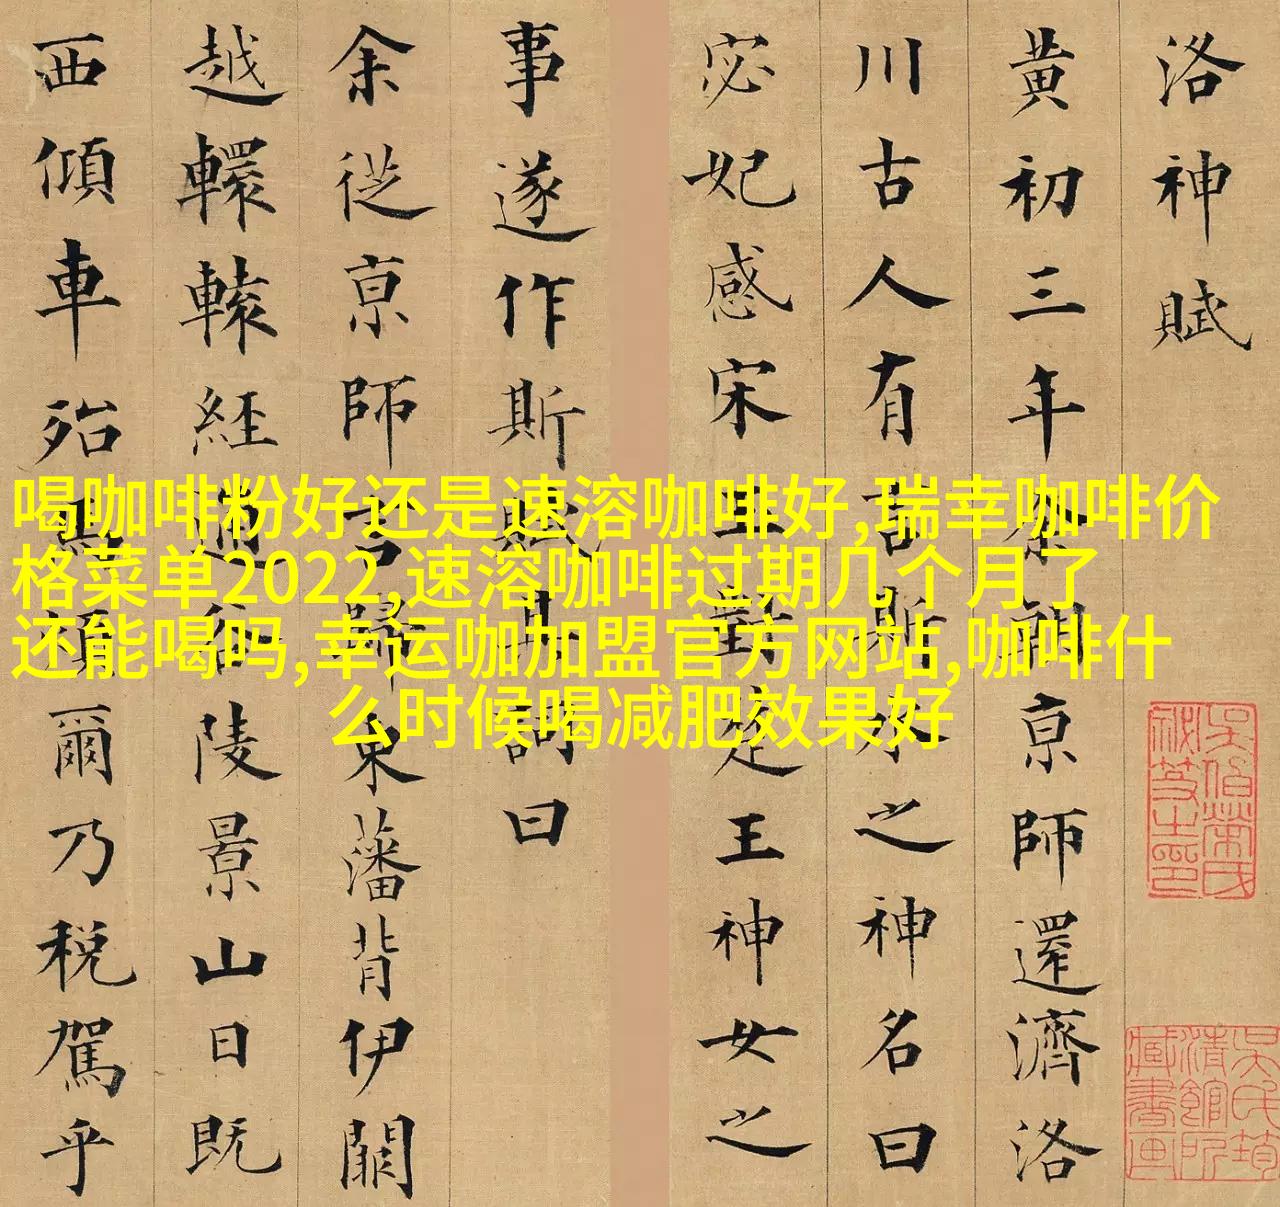 喝咖啡粉好还是速溶咖啡好,瑞幸咖啡价
格菜单2022,速溶咖啡过期几个月了
还能喝吗,幸运咖加盟官方网站,咖啡什
么时候喝减肥效果好
洛神賦
黄初三年余朝亰師還濟洛
川古人有言斯水之神名曰
宓妃感宋玉對楚王神女之
事遂作斯賦其詞曰
余從亰師言歸東藩背伊闕
越轘轅經通谷陵景山日既
西傾車殆馬煩爾乃税駕乎
吳氏筠清館所藏書画